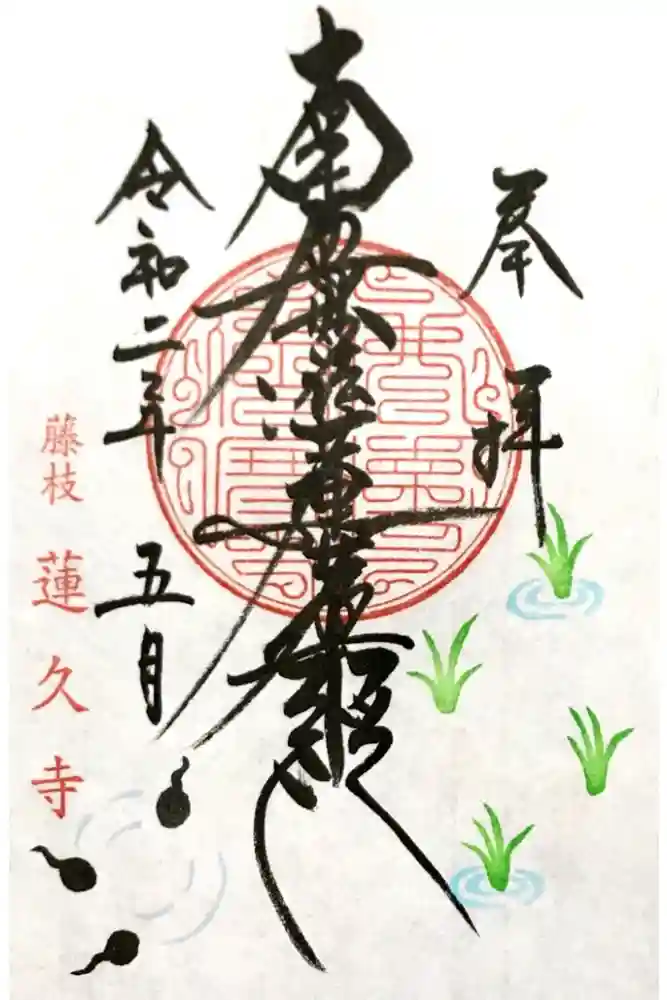 奉拝
南無妙法蓮華経
令和二年
五月
藤枝
蓮久寺